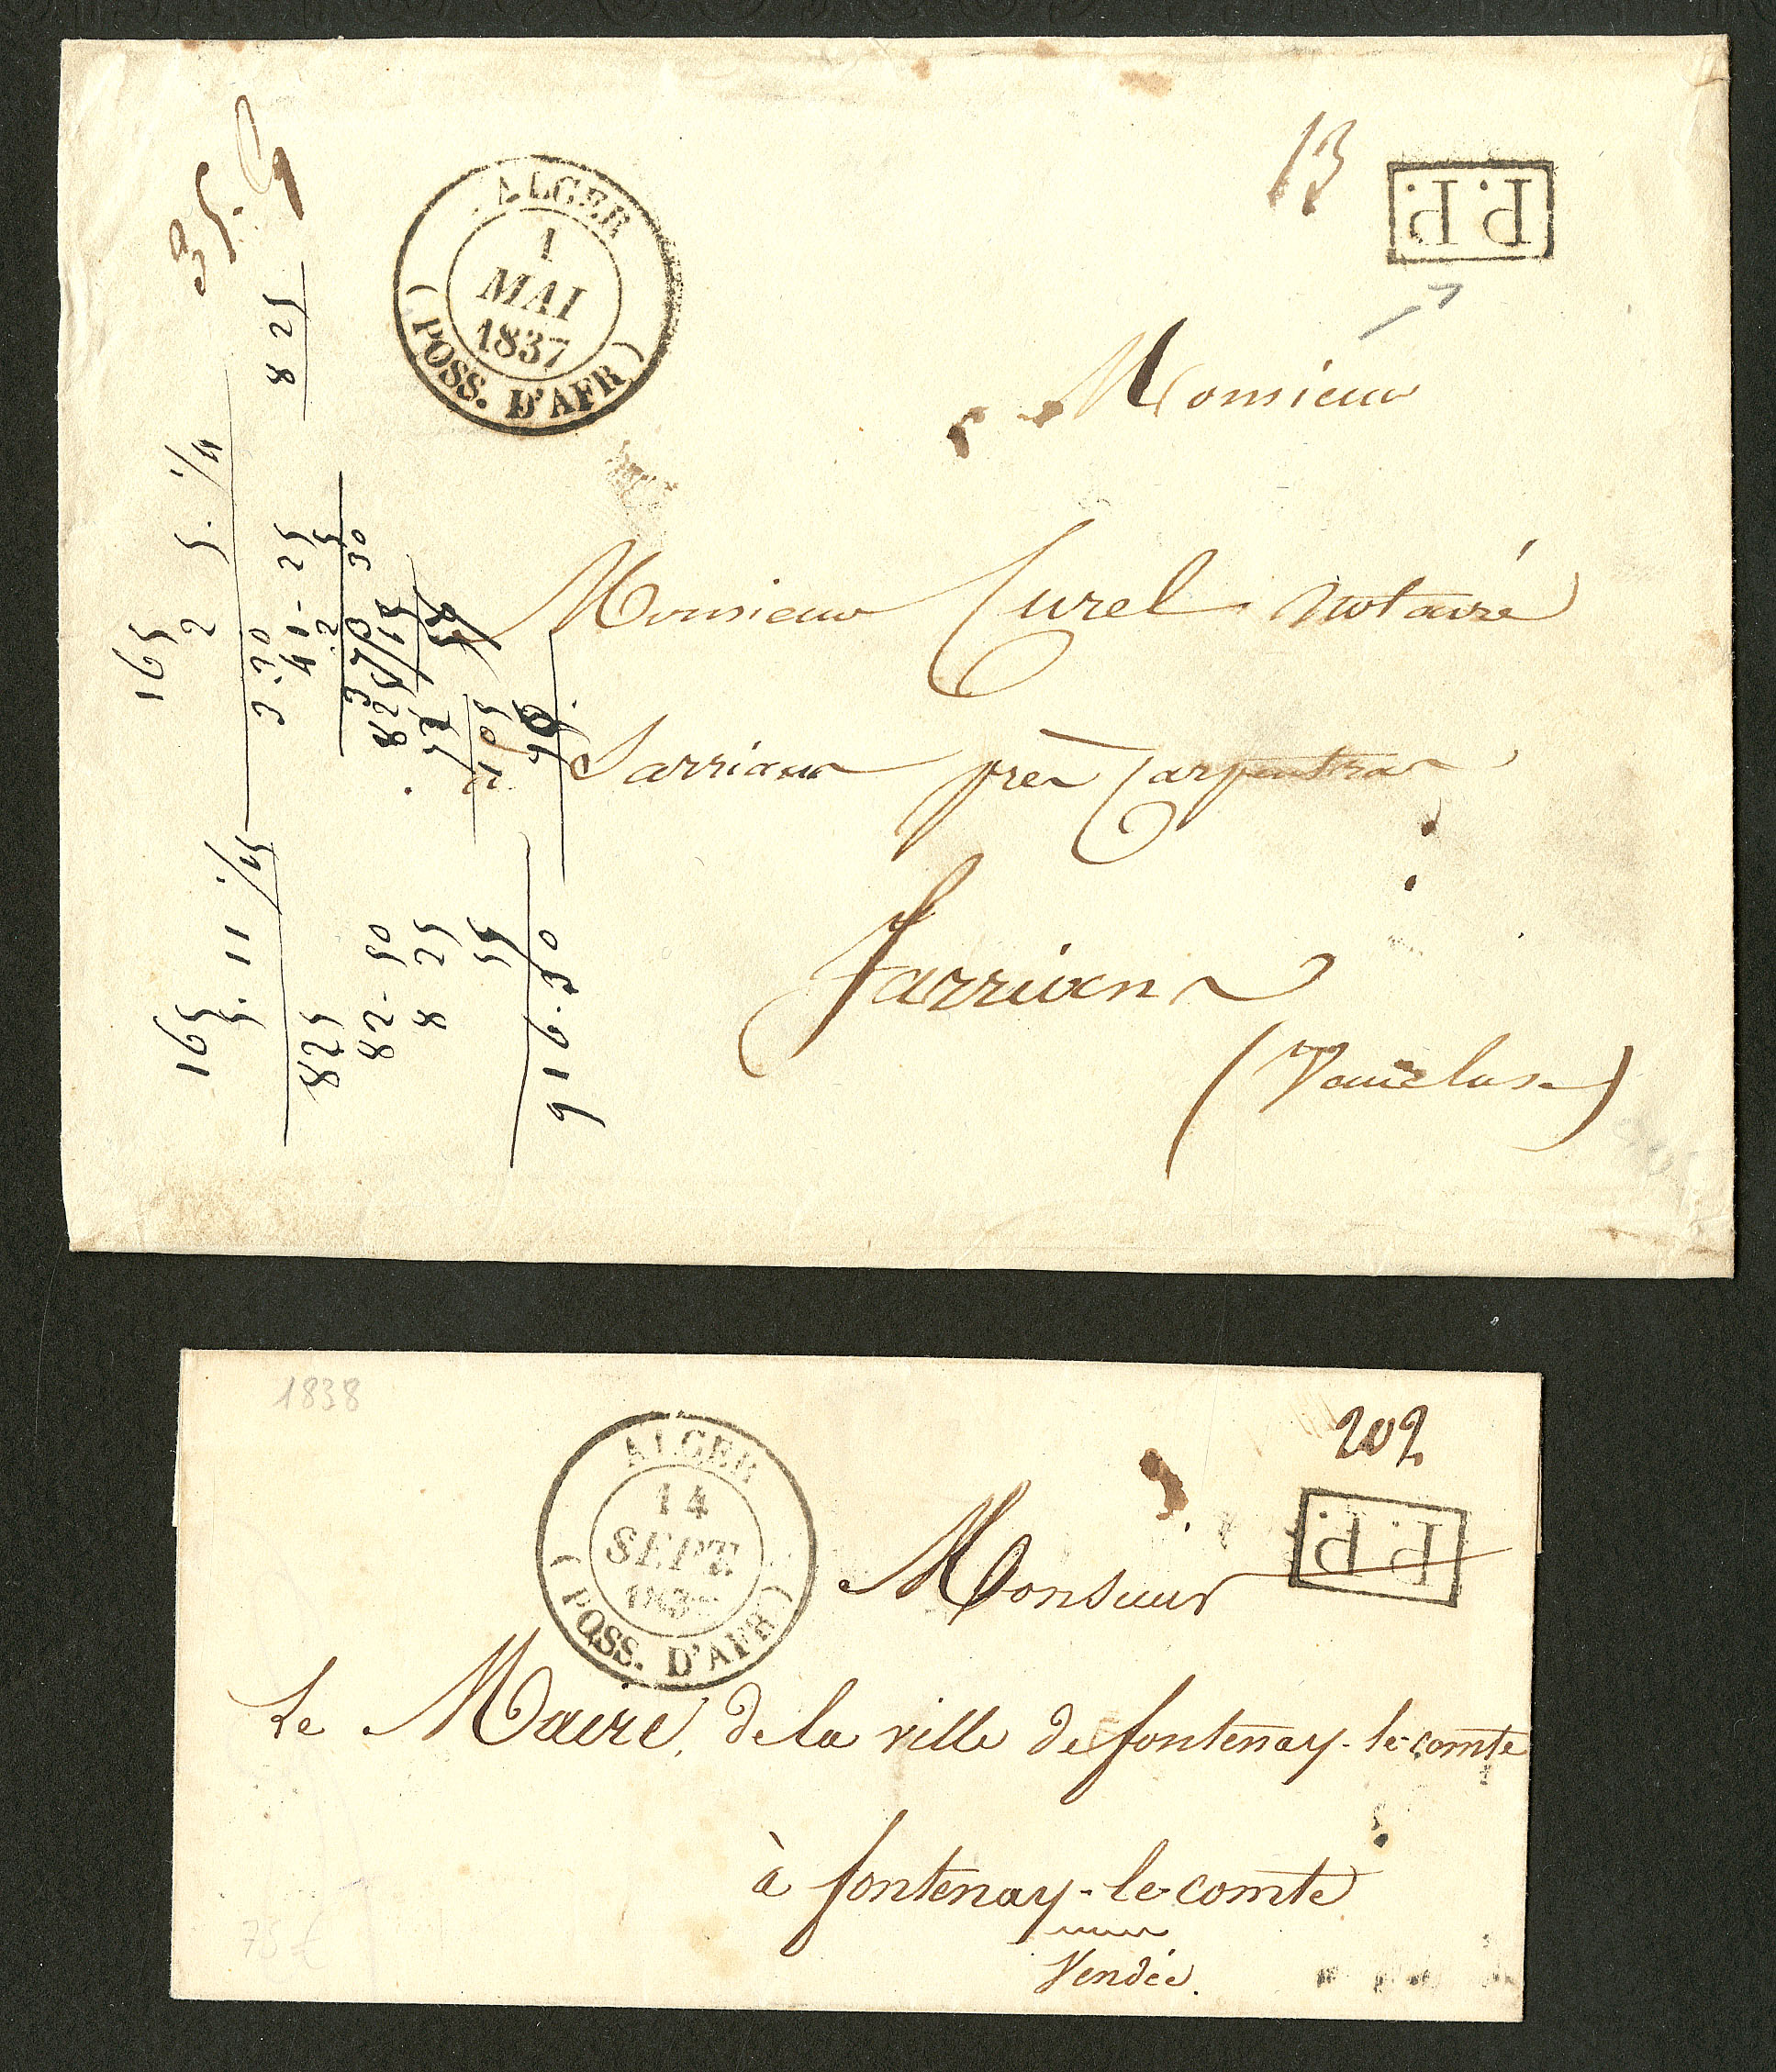 13
P.P.
ALGER
1
MAI
1837
(POSS. D'AFR)
Monsieur
Monsieur Curel Notaire
Sarrians près Carpentras
Sarrians
(Vaucluse)
8 25
165
2 5. 1/4
3.30
41-25
165
5. 11 1/4
825
82-50
8 25
55
916.30
1838
202
ALGER
14
SEPT.
(POSS. D'AFR)
P.P.
Monsieur
Le Maire, de la ville de fontenay-le-comte
à fontenay-le-comte
Vendée.
75 €